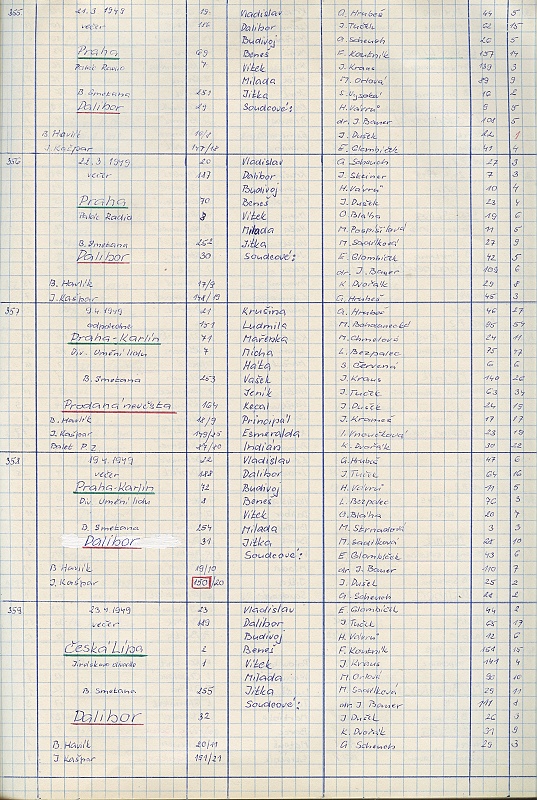 355 21.3 1949 19. Vladislav G. Hrubeš 44 5
večer 116 Dalibor J. Tuček 62 15
Budivoj G. Scheuch 26 5
Praha 69 Beneš F. Koutník 157 14
Palác Radio 7 Vítek J. Kraus 139 3
Milada M. Orlová 89 9
B. Smetana 251 Jitka S. Vysoká 16 2
Dalibor 29 Soudcové: H. Vávrů 9 5
dr. J. Bauer 108 5
B. Havlík 16/8 J. Dušek 22 1
J. Kašpar 147/18 E. Glombíček 41 4
356 22.3 1949 20 Vladislav G. Scheuch 27 3
večer 117 Dalibor J. Steiner 7 3
Budivoj H. Vávrů 10 4
Praha 70 Beneš J. Dušek 23 4
Palác Radio 8 Vítek O. Bláha 19 6
Milada M. Pospíšilová 11 5
B. Smetana 252 Jitka M. Sadílková 27 9
Dalibor 30 Soudcové: E. Glombíček 42 5
dr. J. Bauer 109 6
B. Havlík 17/9 K. Dvořák 29 8
J. Kašpar 148/19 G. Hrubeš 45 3
357 9.4 1949 21 Krušina G. Hrubeš 46 27
odpoledne 151 Ludmila
Praha-Karlín 71 Mařenka M. Chmelová 24 11
Div. Umění lidu 7 Mícha L. Bezpalec 75 17
Hata S. Červená 6 6
B. Smetana 253 Vašek J. Kraus 140 26
Jeník J. Tuček 63 34
Prodaná nevěsta 164 Kecal J. Dušek 24 15
B. Havlík 18/9 Principál J. Krameš 17 17
J. Kašpar 149/25 Esmeralda
Balet P.Z. Indián K. Dvořák 30 22
358 19.4 1949 22 Vladislav G. Hrubeš 47 6
večer 118 Dalibor J. Tuček 64 16
Praha-Karlín 72 Budivoj H. Vávrů 11 5
Div. Umění lidu 8 Beneš L. Bezpalec 76 3
Vítek O. Bláha 20 7
B. Smetana 254 Milada M. Strnadová 3 3
Dalibor 31 Jitka M. Sadílková 28 10
Soudcové: E. Glombíček 43 6
B Havlík 19/10 dr. J. Bauer 110 7
J. Kašpar 150/20 J. Dušek 25 2
G. Scheuch 28 2
359 23.4 1949 23 Vladislav E. Glombíček 44 2
večer 119 Dalibor J. Tuček 65 17
Budivoj H. Vávrů 12 6
Česká Lípa 2 Beneš F. Koutník 158 15
Jiráskovo divadlo 1 Vítek J. Kraus 141 4
Milada M. Orlová 90 10
B. Smetana 255 Jitka M. Sadílková 29 11
Soudcové: dr. J. Bauer 111 8
Dalibor 32 J. Dušek 26 3
K. Dvořák 31 9
B Havlík 20/11 G Scheuch 29 3
J Kašpar 151/21